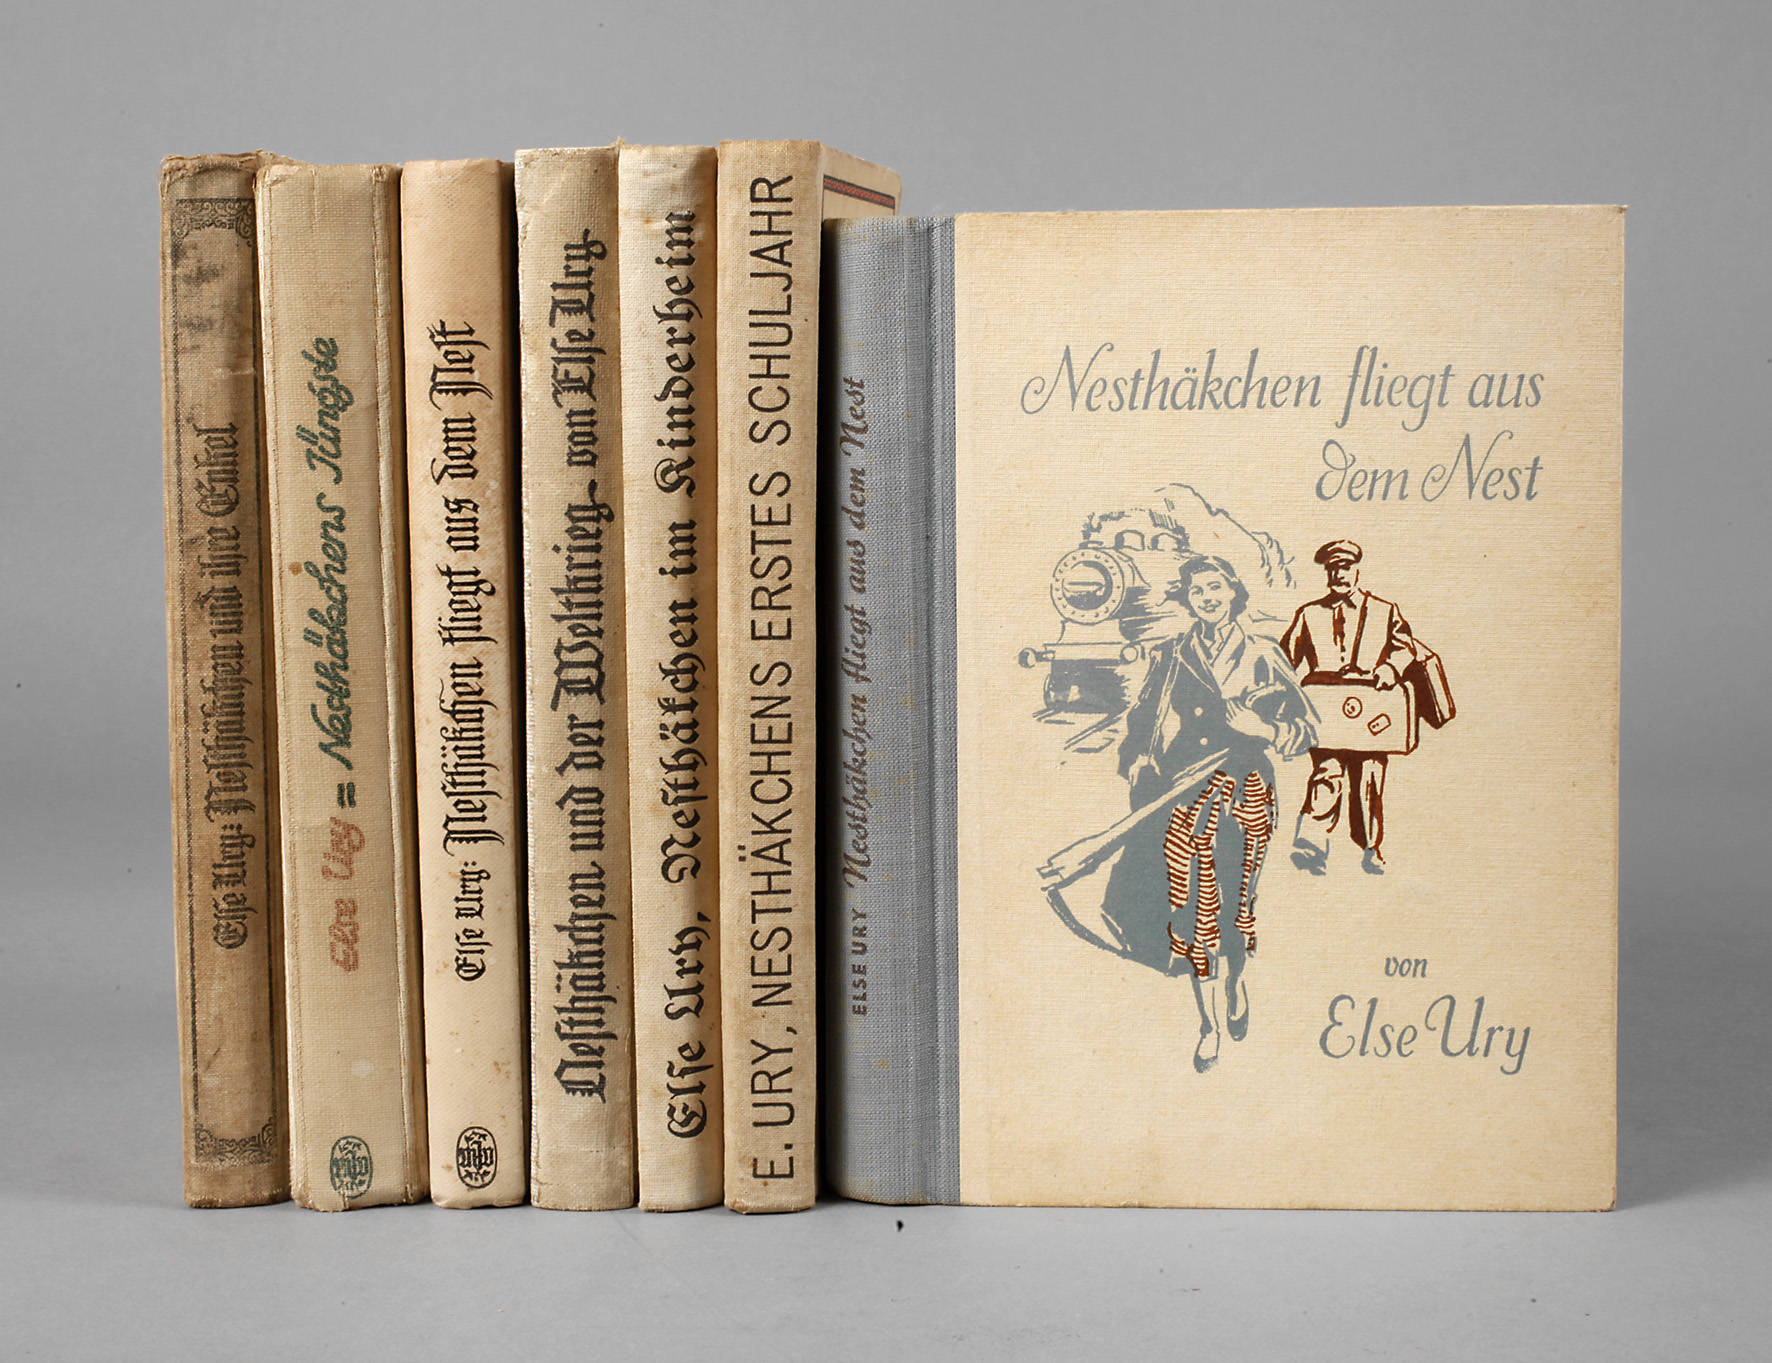 Else Ury: Nesthäkchen und ihre Enkel
Else Ury = Nesthäkchens Jüngste
Else Ury: Nesthäkchen fliegt aus dem Nest
Nesthäkchen und der Weltkrieg - von Else Ury
Else Ury, Nesthäkchen im Kinderheim
E. URY, NESTHÄKCHENS ERSTES SCHULJAHR
ELSE URY Nesthäkchen fliegt aus dem Nest
Nesthäkchen fliegt aus
dem Nest
von
Else Ury